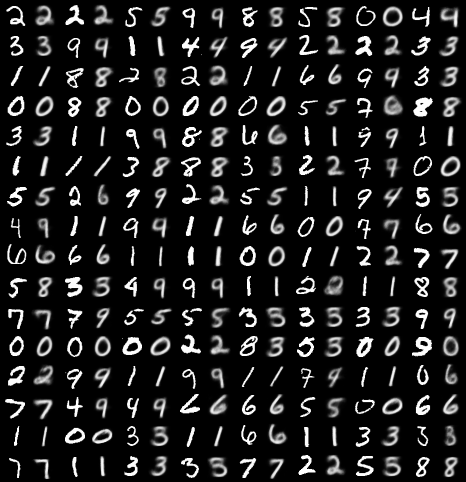 2 2 2 2 5 5 9 9 8 8 5 8 0 0 4 4
3 3 9 9 1 1 4 4 9 4 2 2 2 2 3 3
1 1 8 8 2 8 2 2 1 1 6 6 9 9 3 3
0 0 8 8 0 0 0 0 0 0 5 5 7 6 8 8
3 3 1 1 9 9 8 8 6 6 1 1 9 9 1 1
1 1 1 1 3 8 8 8 3 3 2 2 7 7 0 0
5 5 2 6 9 9 2 2 5 5 1 1 9 4 5 5
4 9 1 1 9 9 1 1 6 6 0 0 7 7 6 6
6 6 6 6 1 1 1 1 0 0 1 1 2 2 7 7
5 8 3 3 4 9 9 9 1 1 2 2 1 1 8 8
7 7 7 9 5 5 5 5 3 3 3 3 3 3 9 9
0 0 0 0 0 0 2 2 8 3 5 3 0 0 9 0
2 2 9 9 1 1 9 9 1 1 7 9 1 1 0 6
7 7 4 9 4 9 6 6 6 6 5 5 0 0 6 6
1 1 0 0 3 3 1 1 6 6 1 1 3 3 3 8
7 7 1 1 3 3 3 3 7 7 2 2 5 5 8 8